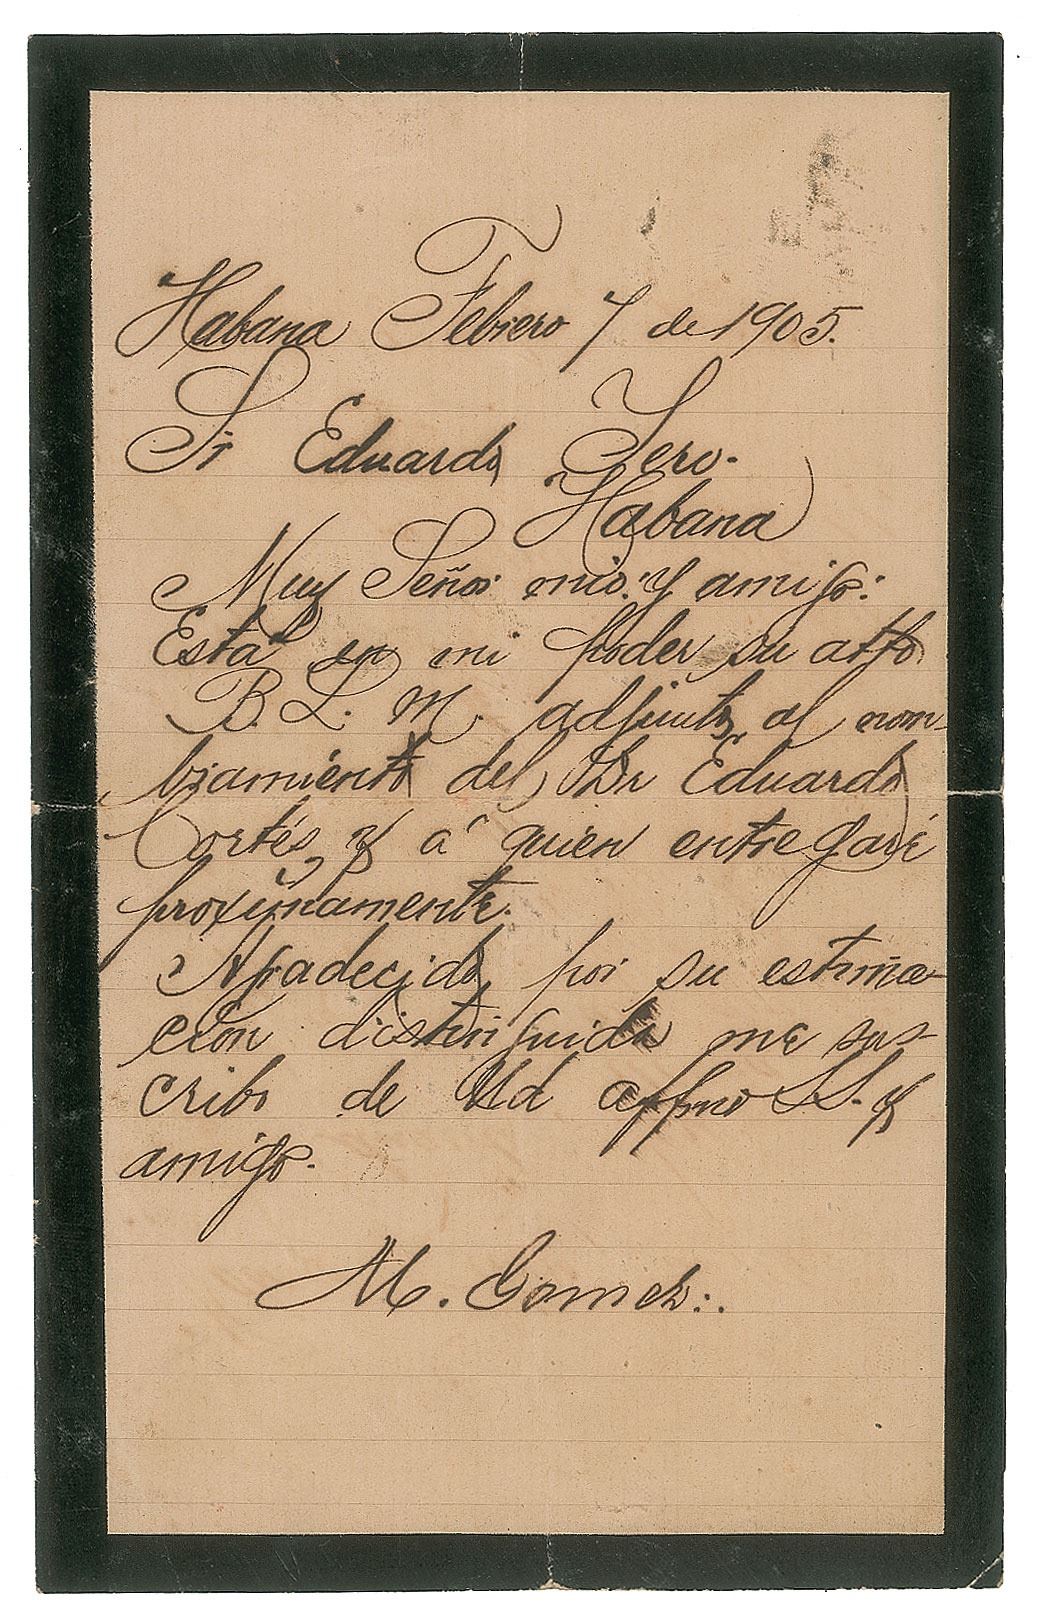 Habana Febrero 7 de 1905.
Sr Eduardo Yero.
Habana
Muy Señor mio: y amigo:
Está en mi poder su atto
B. L. M. adjunto al nom-
bramiento del Dr Eduardo
Cortés, y á quien entregaré
proximamente.
Agradecido por su estima-
ción distinguida me sus-
cribo de Ud affmo S.S. y
amigo.
M. Gomez.